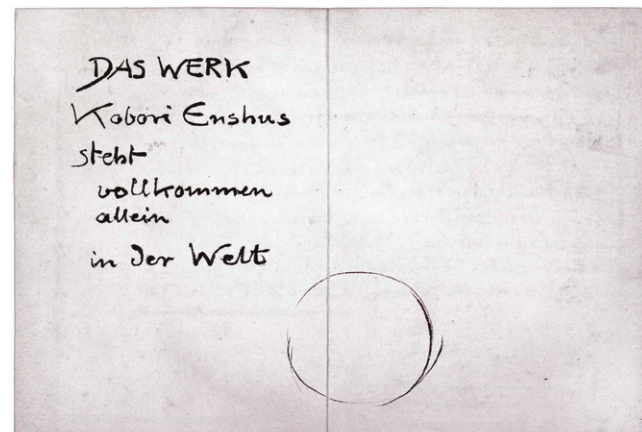 DAS WERK
Kobori Enshus
steht
vollkommen
allein
in der Welt